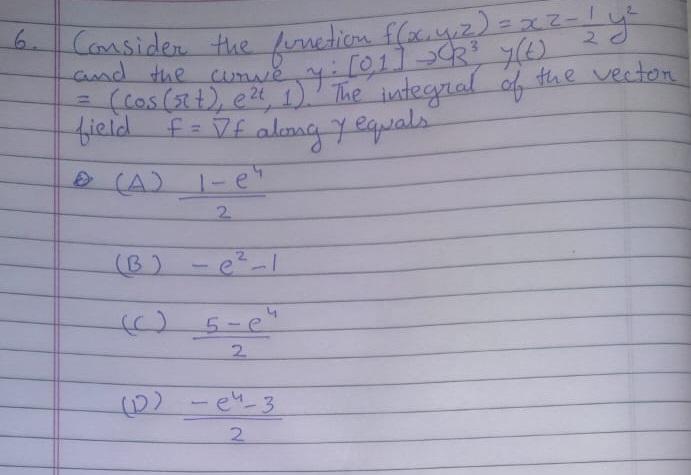 6. Consider the function f(x,y,z) = xz - 1/2 y²
and the curve γ : [0,1] → ℝ³, γ(t)
= (cos(πt), e²ᵗ, 1). The integral of the vector
field f = ∇f along γ equals
(A) 1-e⁴/2
(B) -e²-1
(C) 5-e⁴/2
(D) -e⁴-3/2